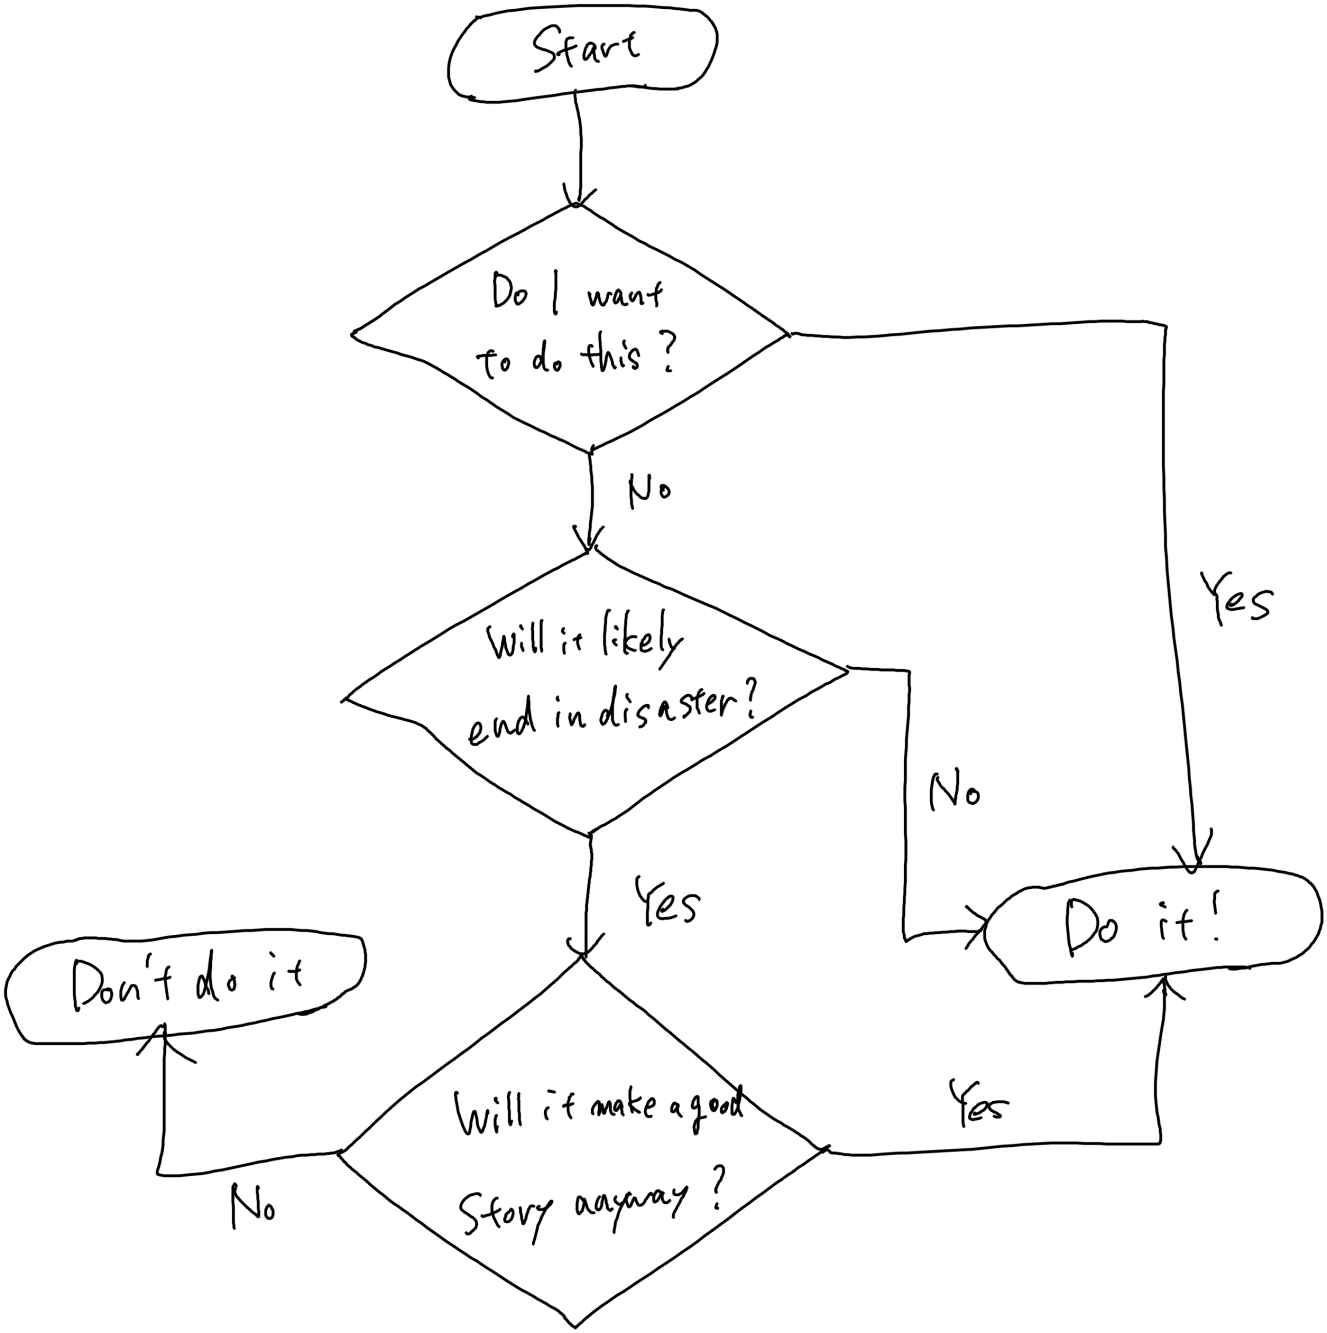 Start
Do I want
to do this?
No
Yes
Will it likely
end in disaster?
No
Yes
Do it!
Don't do it
Will it make a good
Story anyway?
Yes
No